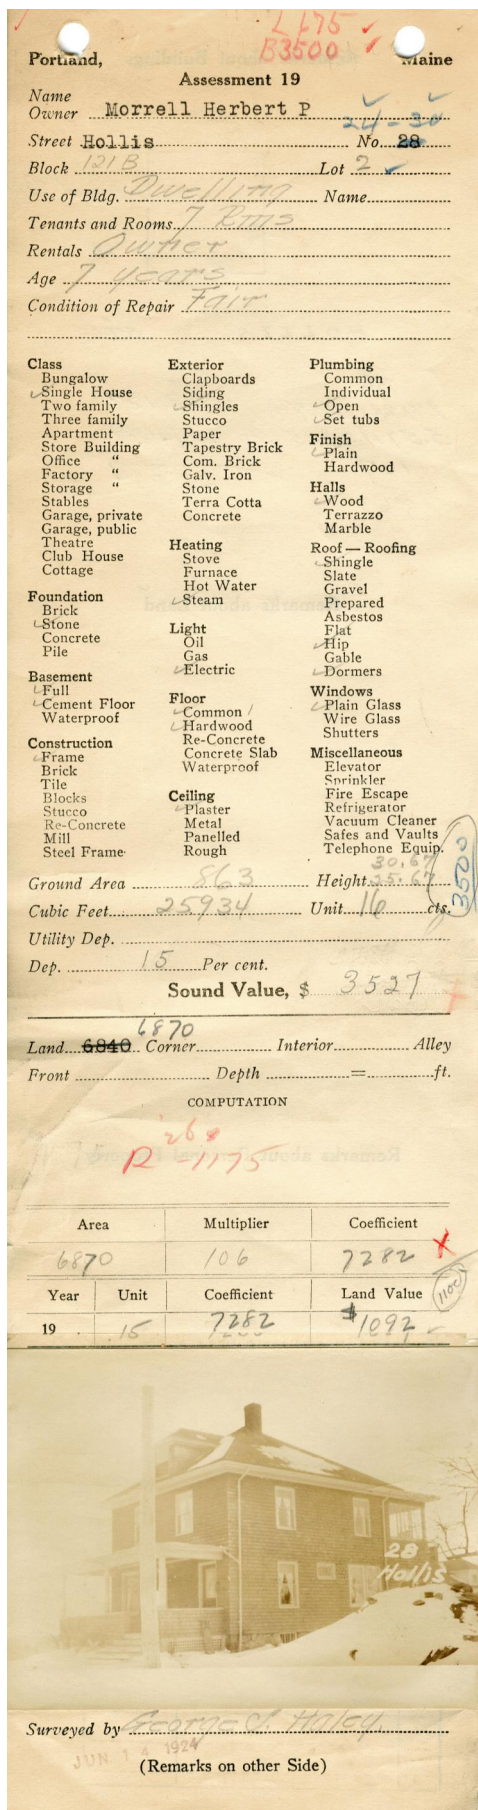 L 175
B3500
Portland, Maine
Assessment 19
Name
Owner Morrell Herbert P
24-30
Street Hollis No. 28
Block 121B Lot 2
Use of Bldg. Dwelling Name
Tenants and Rooms 7 Rms
Rentals Owner
Age 7 years
Condition of Repair Fair
Class
Bungalow
Single House
Two family
Three family
Apartment
Store Building
Office "
Factory "
Storage "
Stables
Garage, private
Garage, public
Theatre
Club House
Cottage
Foundation
Brick
Stone
Concrete
Pile
Basement
Full
Cement Floor
Waterproof
Construction
Frame
Brick
Tile
Blocks
Stucco
Re-Concrete
Mill
Steel Frame
Exterior
Clapboards
Siding
Shingles
Stucco
Paper
Tapestry Brick
Com. Brick
Galv. Iron
Stone
Terra Cotta
Concrete
Heating
Stove
Furnace
Hot Water
Steam
Light
Oil
Gas
Electric
Floor
Common /
Hardwood
Re-Concrete
Concrete Slab
Waterproof
Ceiling
Plaster
Metal
Panelled
Rough
Plumbing
Common
Individual
Open
Set tubs
Finish
Plain
Hardwood
Halls
Wood
Terrazzo
Marble
Roof — Roofing
Shingle
Slate
Gravel
Prepared
Asbestos
Flat
Hip
Gable
Dormers
Windows
Plain Glass
Wire Glass
Shutters
Miscellaneous
Elevator
Sprinkler
Fire Escape
Refrigerator
Vacuum Cleaner
Safes and Vaults
Telephone Equip.
30.67
Ground Area 863 Height 25.67
3500
Cubic Feet 25934 Unit 16 cts.
Utility Dep.
Dep. 15 Per cent.
Sound Value, $ 3527
6870
Land 6840 Corner Interior Alley
Front Depth = ft.
COMPUTATION
268
R-1175
Area Multiplier Coefficient
6870 106 7282
Year Unit Coefficient Land Value
1100
19 .15 7282 $1092
28
Hollis
Surveyed by George S. Haley
JUN 14 1924
(Remarks on other Side)